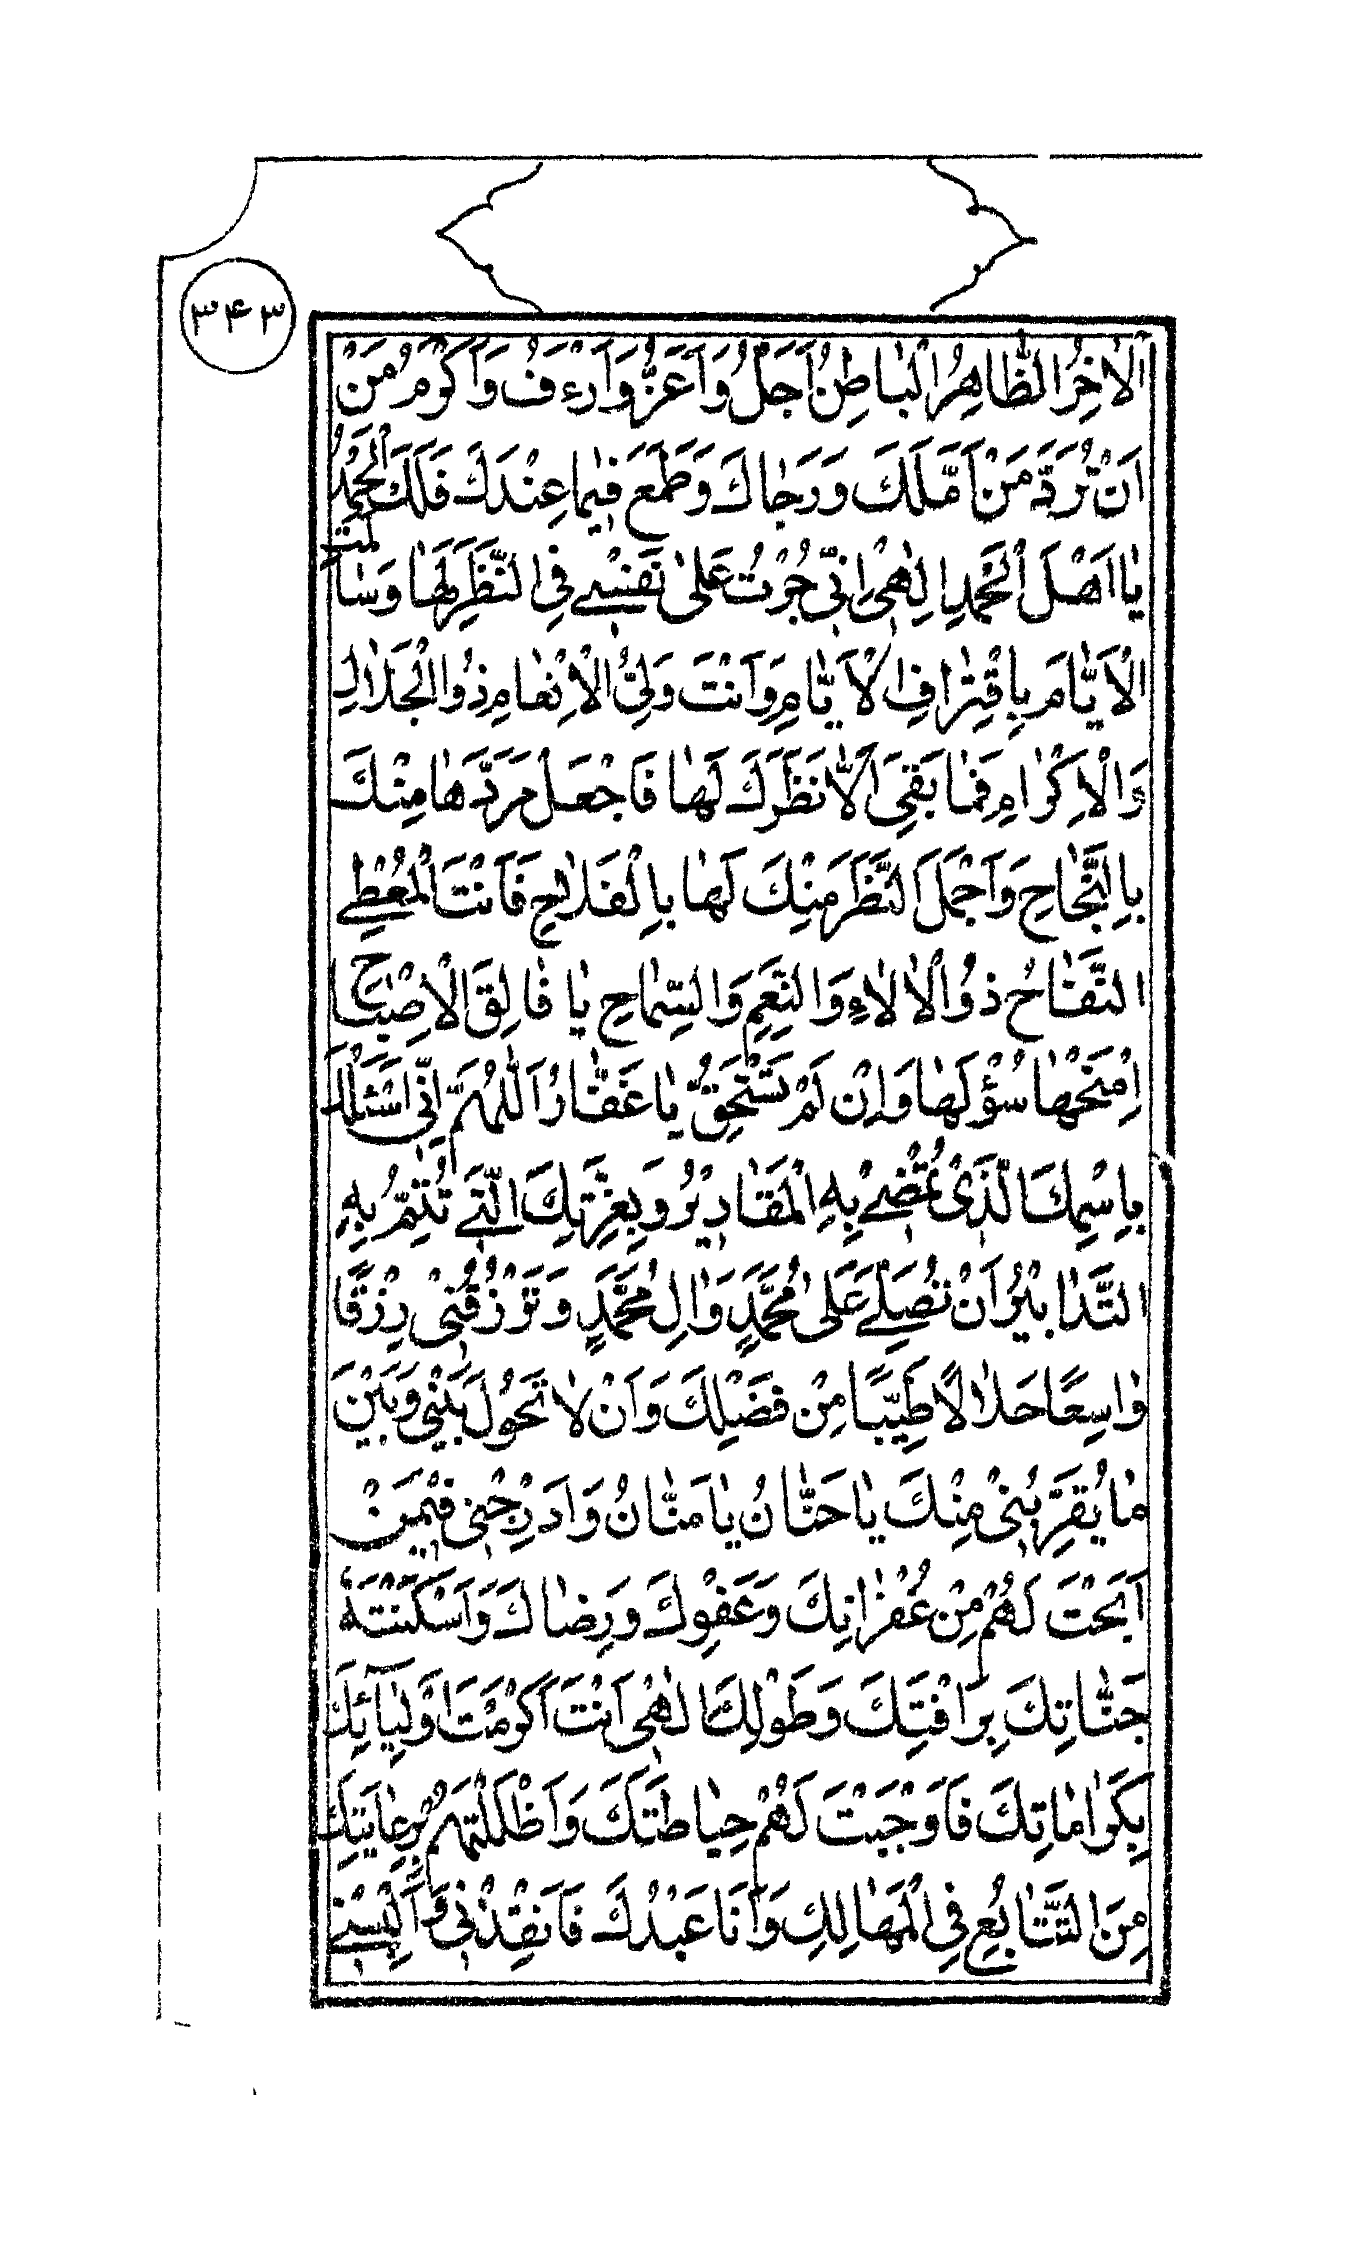 ۳۴۳
اَلْاٰخِرُ الظّٰاهِرُ الْبٰاطِنُ اَجَلُّ وَاَعَزُّ وَاَرْءَفُ وَاَكْرَمُ مِنْ
اَنْ تَرُدَّ مَنْ اَمَّلَكَ وَرَجٰاكَ وَطَمَعَ فيٖمٰا عِنْدَكَ فَلَكَ الْحَمْدُ
يٰا اَهْلَ الْحَمْدِ اِلٰهٖى اِنّٖى جُرْتُ عَلٰى نَفْسٖى فِى النَّظَرِ لَهٰا وَسٰالَمْتُ
الْاَيّٰامَ بِاقْتِرٰافِ الْاٰثٰامِ وَاَنْتَ وَلِىُّ الْاِنْعٰامِ ذُوالْجَلٰالِ
وَالْاِكْرٰامِ فَمٰا بَقِىَ اِلّٰا نَظَرُكَ لَهٰا فَاجْعَلْ مَرَدَّهٰا مِنْكَ
بِالنَّجٰاحِ وَاَجْمِلِ النَّظَرَ مِنْكَ لَهٰا بِالْفَلٰاحِ فَاَنْتَ الْمُعْطِى
النَّفّٰاحُ ذُوالْاٰلٰاءِ وَالنِّعَمِ وَالسَّمٰاحِ يٰا فٰالِقَ الْاِصْبٰاحِ
اِمْنَحْهٰا سُؤْلَهٰا وَاِنْ لَمْ تَسْتَحِقَّ يٰا غَفّٰارُ اَللّٰهُمَّ اِنّٖى اَسْئَلُكَ
بِاسْمِكَ الَّذٖى تُمْضٖى بِهِ الْمَقٰاديٖرَ وَبِعِزَّتِكَ الَّتٖى تُتِمُّ بِهِ
التَّدٰابيٖرَ اَنْ تُصَلِّىَ عَلٰى مُحَمَّدٍ وَاٰلِ مُحَمَّدٍ وَتَرْزُقَنٖى رِزْقًا
وٰاسِعًا حَلٰالًا طَيِّبًا مِنْ فَضْلِكَ وَاَنْ لٰا تَحُولَ بَيْنٖى وَبَيْنَ
مٰا يُقَرِّبُنٖى مِنْكَ يٰا حَنّٰانُ يٰا مَنّٰانُ وَادْرِجْنٖى فيٖمَنْ
اَبَحْتَ لَهُمْ مِنْ غُفْرٰانِكَ وَعَفْوِكَ وَرِضٰاكَ وَاَسْكَنْتَهُ
جَنّٰاتِكَ بِرَاْفَتِكَ وَطَوْلِكَ اِلٰهٖى اَنْتَ اَكْرَمْتَ اَوْلِيٰآئَكَ
بِكَرٰامٰاتِكَ فَاَوْجَبْتَ لَهُمْ حِيٰاطَتَكَ وَاَظْلَلْتَهُمْ بِرِعٰايَتِكَ
مِنَ التَّتٰابُعِ فِى الْمَهٰالِكِ وَاَنَا عَبْدُكَ فَاَنْقِذْنٖى وَاَلْبِسْنٖى